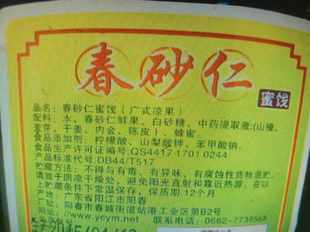 春砂仁
蜜饯
品名：春砂仁蜜饯（广式凉果）
配料：水、春砂仁鲜果、白砂糖、中药提取液:(山楂、
麦芽、干姜、内金、陈皮)、蜂蜜
食品添加剂：柠檬酸、山梨酸钾、苯甲酸钠。
食品生产许可证编号:QS4417 1701 0244
产品标准代号:DB44/T517
贮藏方法：不得与有毒、有异味、有腐蚀性货物混贮，
置于阴凉干燥处、避免阳光直射和靠近热源，在
以上贮藏条件下常温保存，保质期12个月
产地：广东省阳江市阳春
阳春市春城街道站港工业区第B2号
www.ycym.net 联系电话：0662-7738568